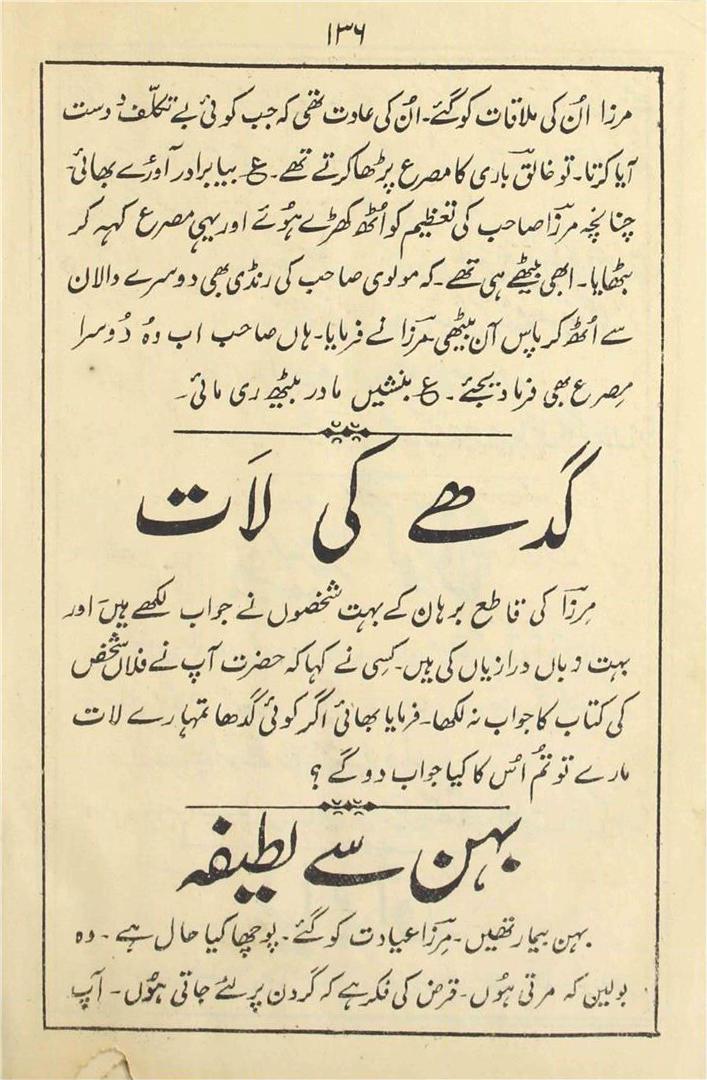 ۱۳۶
مرزا اُن کی ملاقات کو گئے۔ اُن کی عادت تھی کہ جب کوئی بے تکلّف دوست
آیا کرتا۔ تو خالق باری کا مصرع پڑھا کرتے تھے۔ ع بیا برادر آوَرے بھائی
چنانچہ مرزا صاحب کی تعظیم کو اُٹھ کھڑے ہوُئے اور یہی مصرع کہہ کر
بٹھایا۔ ابھی بیٹھے ہی تھے۔ کہ مولوی صاحب کی رنڈی بھی دوسرے دالان
سے اُٹھ کر پاس آن بیٹھی۔ مرزا نے فرمایا۔ ہاں صاحب اب وہُ دُوسرا
مِصرع بھی فرما دیجئے۔ ع بنشیں مادر بیٹھ ری مائی۔
گدھے کی لَات
مِرزا کی قاطع برہان کے بہت شخصوں نے جواب لکھے ہیں اور
بہت زباں درازیاں کی ہیں۔ کسِی نے کہا کہ حضرت آپ نے فلاں شخص
کی کتاب کا جواب نہ لکھا۔ فرمایا بھائی اگر کوئی گدھا تمہارے لات
مارے تو تمُ اُس کا کیا جواب دو گے ؟
بہن سے لطیفہ
بہن بیمار تھیں۔ مِرزا عیادت کو گئے۔ پوچھا کیا حال ہے۔ وہ
بولین کہ مرتی ہوُں۔ قرض کی فکر ہے کہ گردن پر لئے جاتی ہوُں۔ آپ